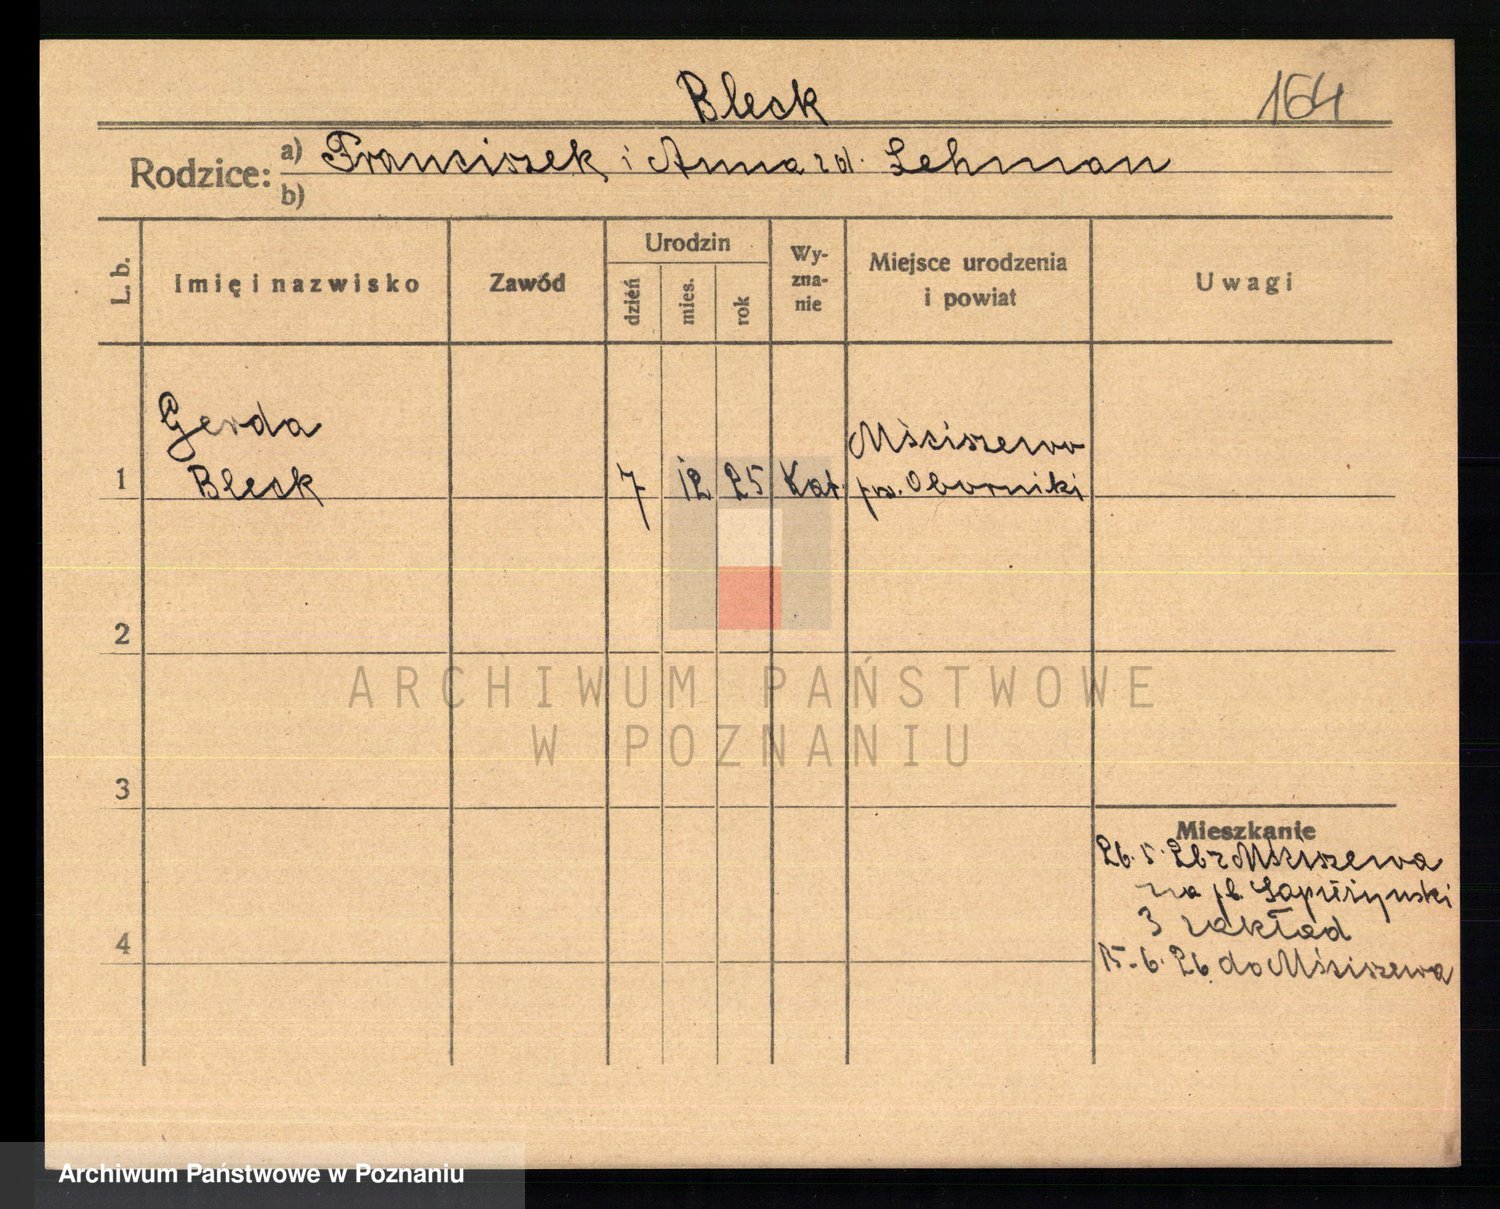 Bleck
164
Rodzice: a) Franciszek i Anna zd. Lehman
b)
L. b.
Imię i nazwisko
Zawód
Urodzin
dzień
mies.
rok
Wy-
zna-
nie
Miejsce urodzenia
i powiat
Uwagi
Gerda
Mściszewo
1 Bleck 7 12 25 Kat. pw. Oborniki
2
ARCHIWUM PAŃSTWOWE
W POZNANIU
3
Mieszkanie
26. 5. 26 z Mściszewa
na pl.
3 zakład
4
15. 6. 26 do Mściszewa
Archiwum Państwowe w Poznaniu